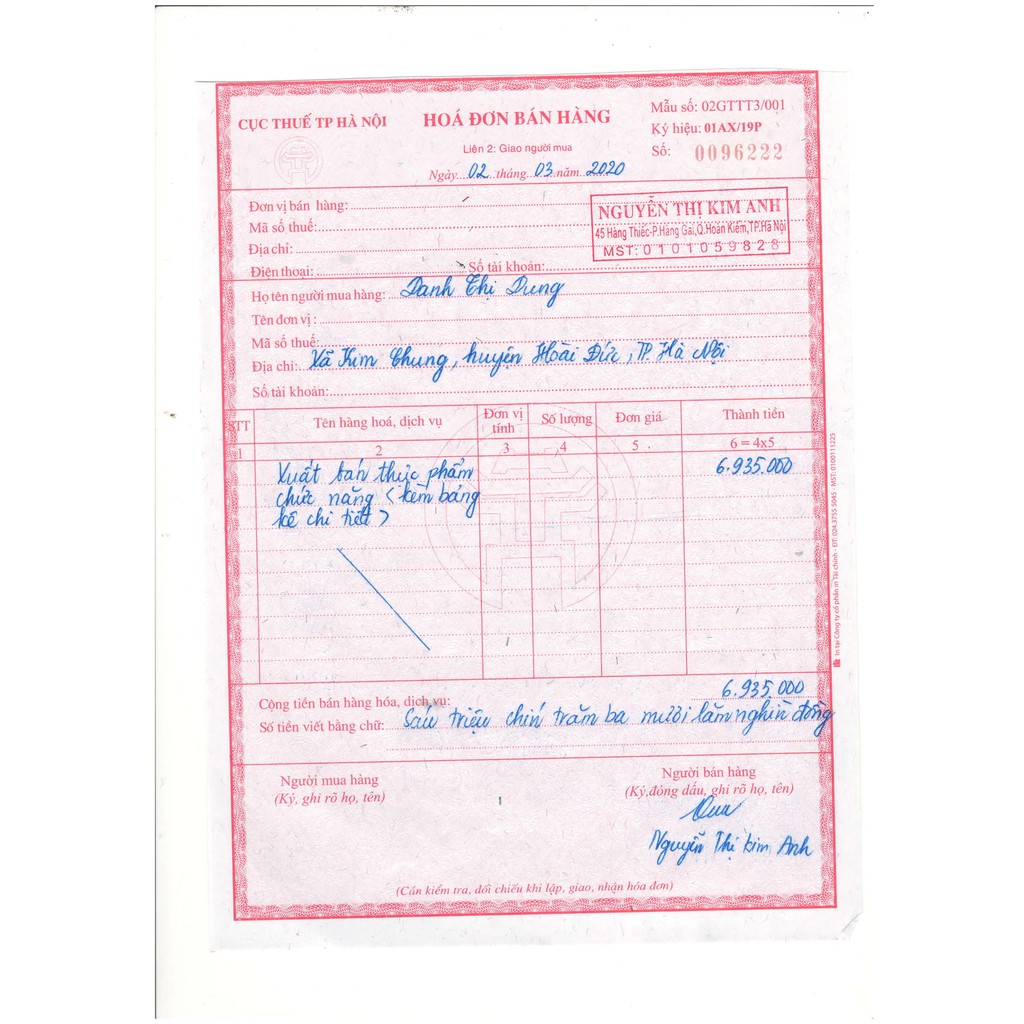 CỤC THUẾ TP HÀ NỘI
HOÁ ĐƠN BÁN HÀNG
Liên 2: Giao người mua
Ngày...02...tháng...03...năm...2020
Mẫu số: 02GTTT3/001
Ký hiệu: 01AX/19P
Số: 0096222
Đơn vị bán hàng:
Mã số thuế:
Địa chỉ:
Điện thoại: Số tài khoản:
NGUYỄN THỊ KIM ANH
45 Hàng Thiếc-P.Hàng Gai,Q.Hoàn Kiếm,TP.Hà Nội
MST: 0101059828
Họ tên người mua hàng: Danh Thị Dung
Tên đơn vị :
Mã số thuế:
Địa chỉ: Xã Kim Chung, huyện Hoài Đức, TP. Hà Nội
Số tài khoản:
STT Tên hàng hoá, dịch vụ Đơn vị tính Số lượng Đơn giá Thành tiền
1 2 3 4 5 6 = 4x5
Xuất bán thực phẩm 6.935.000
chức năng < kèm bảng
kê chi tiết >
Cộng tiền bán hàng hóa, dịch vụ: 6.935.000
Số tiền viết bằng chữ: Sáu triệu chín trăm ba mươi lăm nghìn đồng
Người mua hàng
(Ký, ghi rõ họ, tên)
Người bán hàng
(Ký,đóng dấu, ghi rõ họ, tên)
Nguyễn Thị Kim Anh
(Cần kiểm tra, đối chiếu khi lập, giao, nhận hóa đơn)
In tại Công ty cổ phần in Tài chính - ĐT: 024.3755 5045 - MST: 0100111225